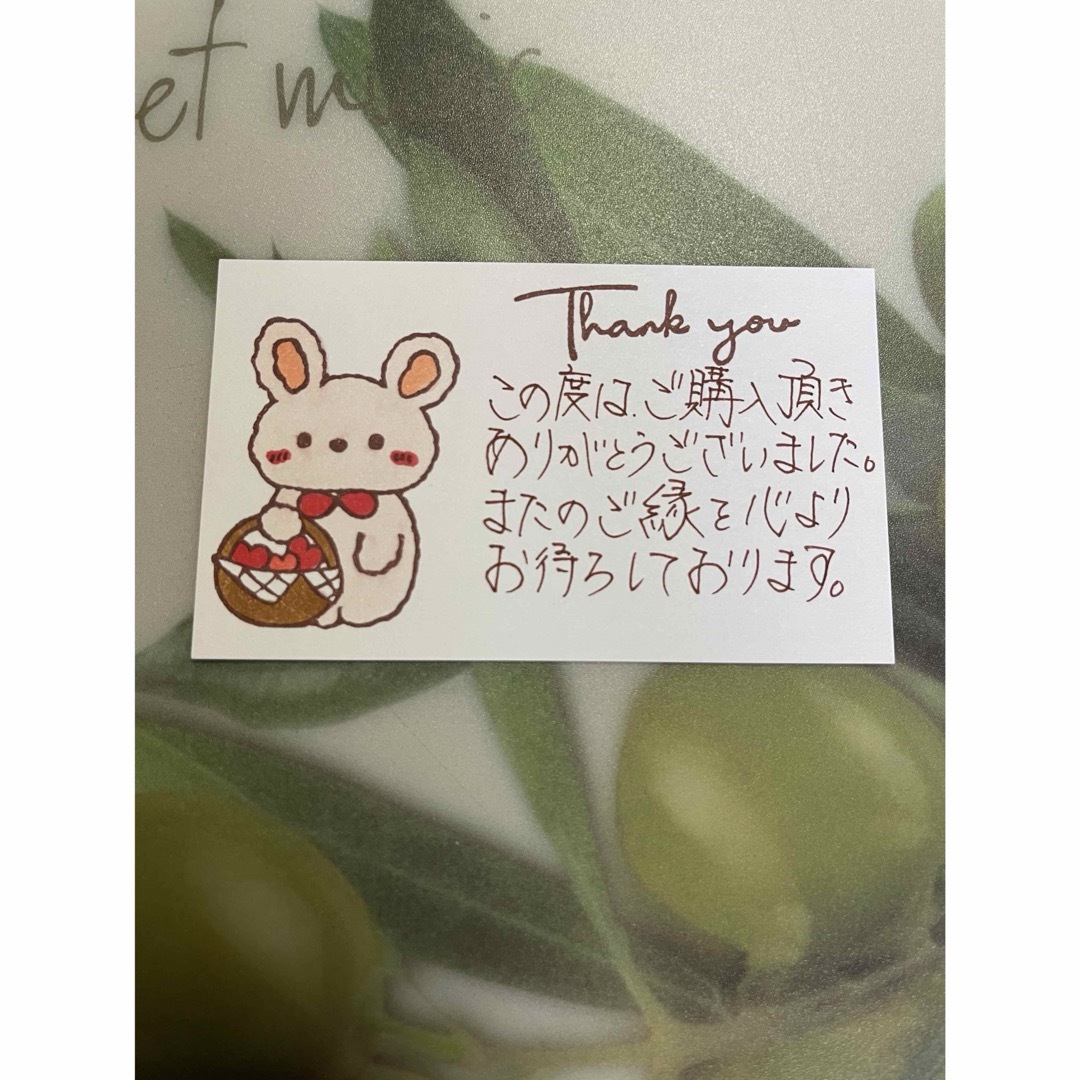 et
Thank you
この度は、ご購入頂き
ありがとうございました。
またのご縁を心より
お待ちしております。